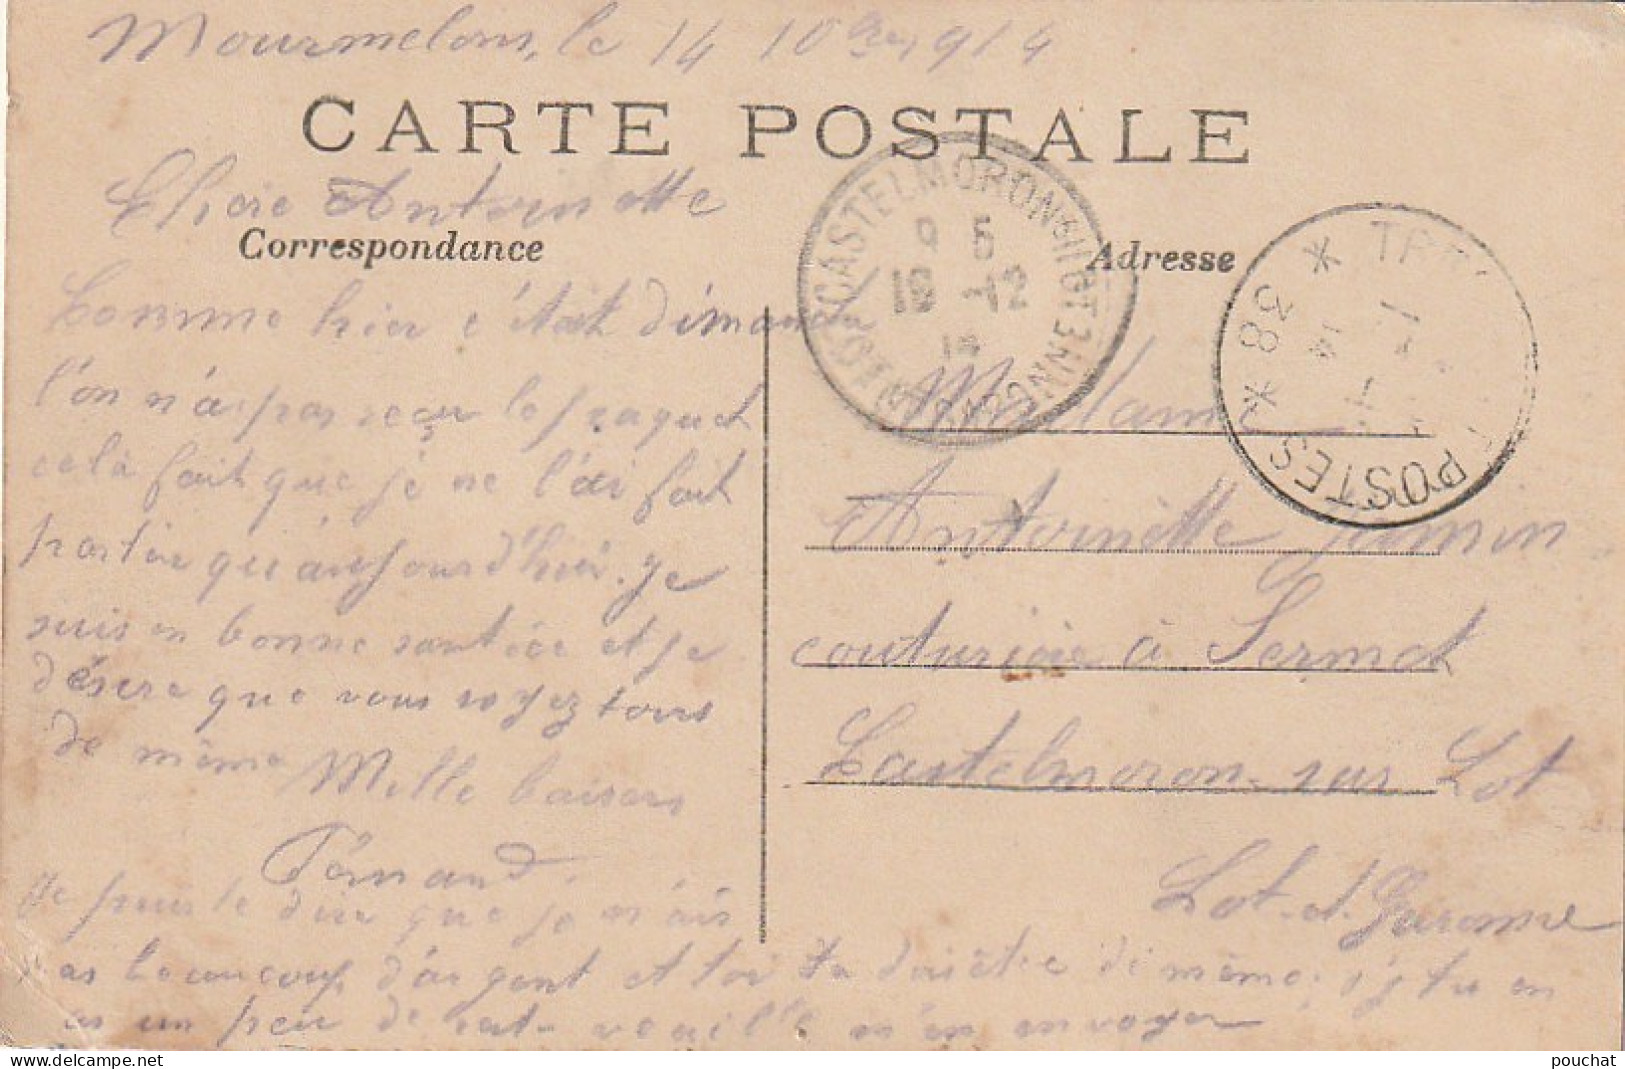 Mourmelon, le 14 10bre 1914
CARTE POSTALE
Chère Antoinette
Correspondance
Comme hier c'était dimanche
l'on n'a pas reçu le paquet
celà fait que je ne l'ai fait
partir qu'aujourd'hui. Je
suis en bonne santée et je
désire que vous soyez tous
de même Mille baisers
Fernand.
Je puis te dire que je n'ais
pas beaucoup d'argent et toi tu dois être de même; si tu en
as un peu de reste veuille m'en envoyer
CASTELMORON S LOT
LOT ET GARONNE
9 5
18 -12
14
Adresse
* 38 *
POSTES
14
Madame
Antoinette Jamin
couturière à Sermet
Castelmoron-sur Lot
Lot-et-Garonne
www.delcampe.net
pouchat